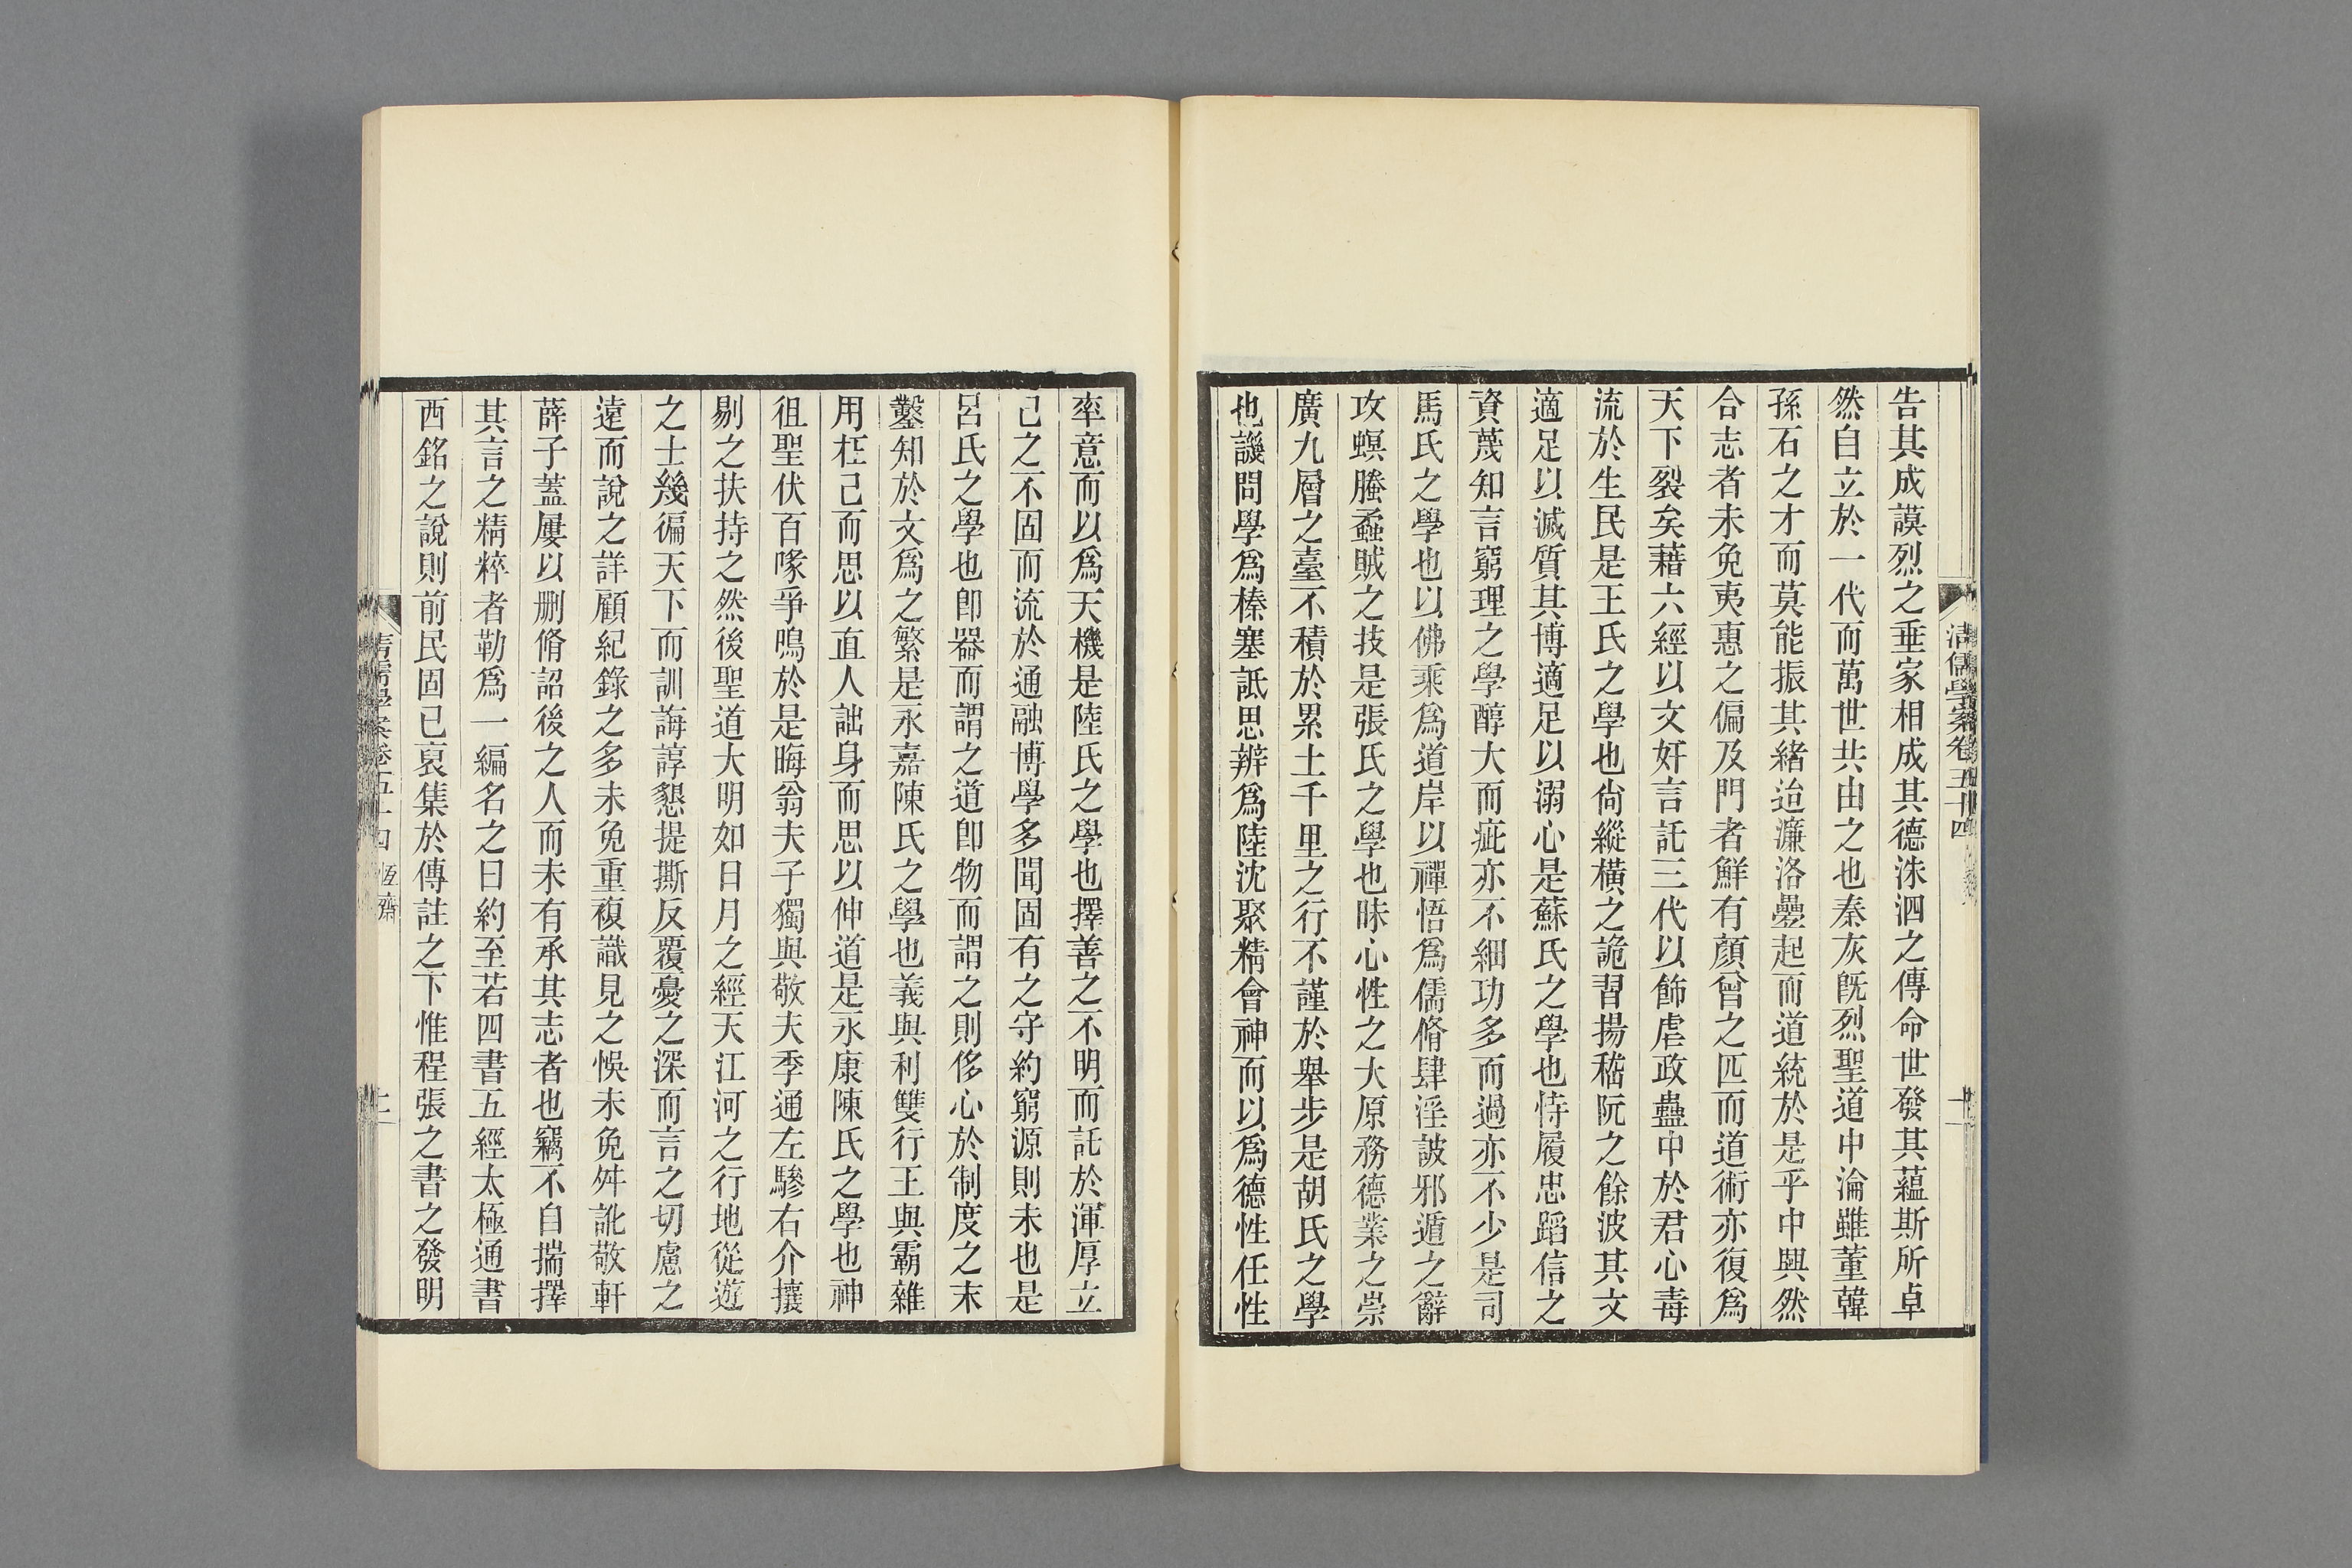 清儒學案卷五十四
告其成謨烈之垂家相成其德洙泗之傳命世發其蘊斯所卓
然自立於一代而萬世共由之也秦灰旣烈聖道中淪雖董韓
孫石之才而莫能振其緒迨濂洛疊起而道統於是乎中興然
合志者未免夷惠之偏及門者鮮有顏曾之匹而道術亦復爲
天下裂矣藉六經以文奸言託三代以飾虐政蠱中於君心毒
流於生民是王氏之學也尙縱橫之詭習揚嵇阮之餘波其文
適足以滅質其博適足以溺心是蘇氏之學也恃履忠蹈信之
資蔑知言窮理之學醇大而疵亦不細功多而過亦不少是司
馬氏之學也以佛乘爲道岸以禪悟爲儒脩肆淫詖邪遁之辭
攻螟螣蟊賊之技是張氏之學也昧心性之大原務德業之崇
廣九層之臺不積於累土千里之行不謹於舉步是胡氏之學
也譏問學爲榛塞詆思辨爲陸沈聚精會神而以爲德性任性
率意而以爲天機是陸氏之學也擇善之不明而託於渾厚立
己之不固而流於通融博學多聞固有之守約窮源則未也是
呂氏之學也卽器而謂之道卽物而謂之則侈心於制度之末
鑿知於文爲之繁是永嘉陳氏之學也義與利雙行王與霸雜
用枉己而思以直人詘身而思以伸道是永康陳氏之學也神
徂聖伏百喙爭鳴於是晦翁夫子獨與敬夫季通左驂右介攘
剔之扶持之然後聖道大明如日月之經天江河之行地從遊
之士幾徧天下而訓誨諄懇提撕反覆憂之深而言之切慮之
遠而說之詳顧紀錄之多未免重複識見之悞未免舛訛敬軒
薛子蓋屢以刪脩詔後之人而未有承其志者也竊不自揣擇
其言之精粹者勒爲一編名之曰約至若四書五經太極通書
西銘之說則前民固已裒集於傳註之下惟程張之書之發明
清儒學案卷五十四 恆齋 二